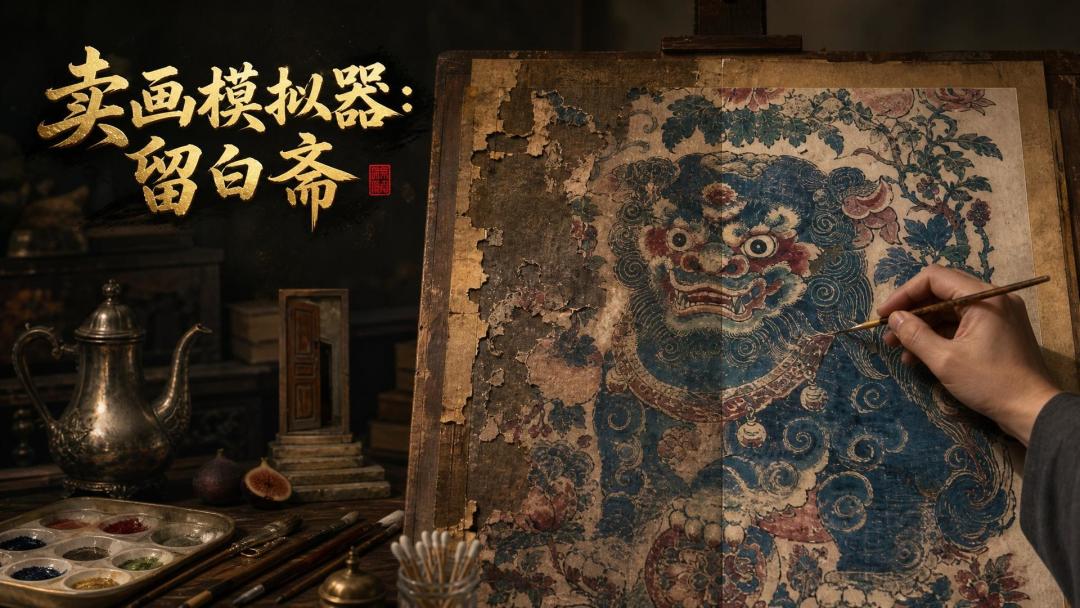 卖画模拟器：
留白斋